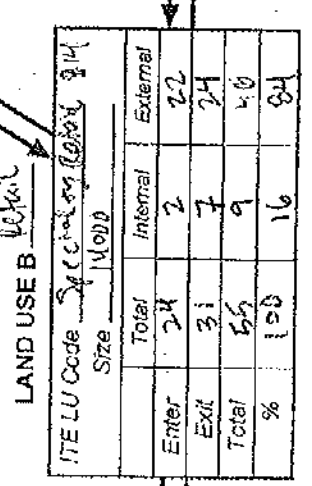 LAND USE B Retail
ITE LU Code Specialty Retail 814
Size 14000
Total Internal External
Enter 24 2 22
Exit 31 7 24
Total 55 9 46
% 100 16 84